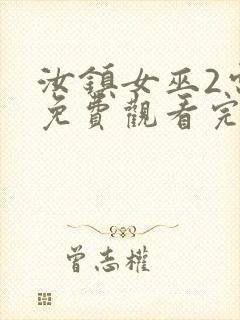 汝鎮女巫2
免費觀看完
曾志權